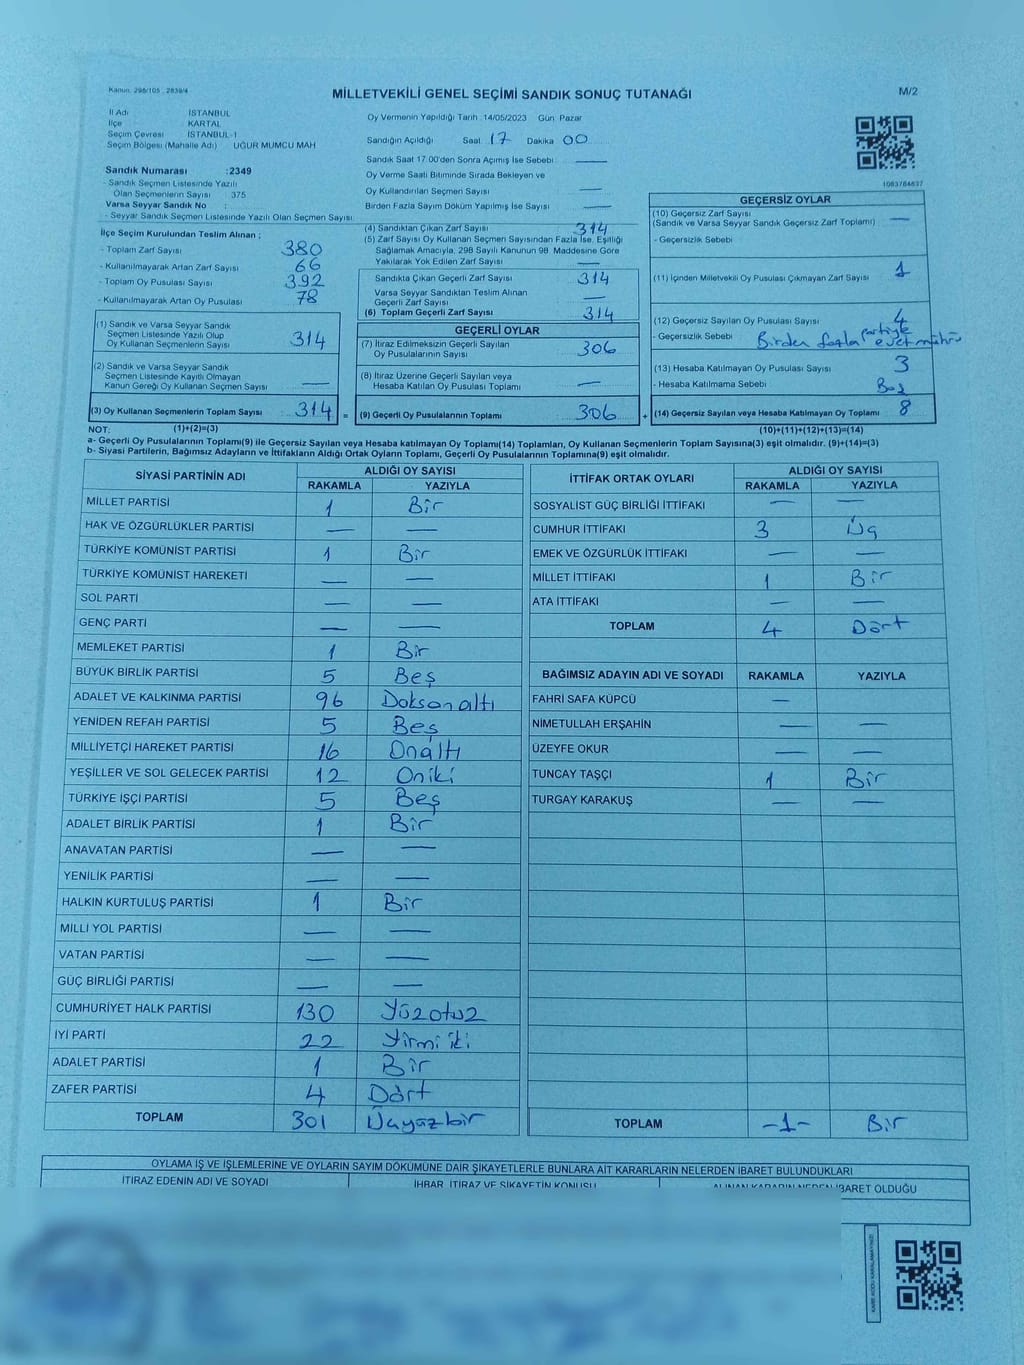 Kanun. 298/105 , 2839/4
MİLLETVEKİLİ GENEL SEÇİMİ SANDIK SONUÇ TUTANAĞI
M/2
İl Adı İSTANBUL
İlçe KARTAL
Seçim Çevresi İSTANBUL-1
Seçim Bölgesi (Mahalle Adı) UĞUR MUMCU MAH
Oy Vermenin Yapıldığı Tarih 14/05/2023 Gün Pazar
Sandığın Açıldığı Saat 17 Dakika 00
Sandık Saat 17.00'den Sonra Açılmış İse Sebebi —
Oy Verme Saati Bitiminde Sırada Bekleyen ve
Oy Kullandırılan Seçmen Sayısı —
Birden Fazla Sayım Döküm Yapılmış İse Sayısı —
1083784637
Sandık Numarası :2349
- Sandık Seçmen Listesinde Yazılı
Olan Seçmenlerin Sayısı 375
Varsa Seyyar Sandık No :
- Seyyar Sandık Seçmen Listesinde Yazılı Olan Seçmen Sayısı:
İlçe Seçim Kurulundan Teslim Alınan ;
- Toplam Zarf Sayısı 380
- Kullanılmayarak Artan Zarf Sayısı 66
- Toplam Oy Pusulası Sayısı 392
- Kullanılmayarak Artan Oy Pusulası 78
(1) Sandık ve Varsa Seyyar Sandık
Seçmen Listesinde Yazılı Olup
Oy Kullanan Seçmenlerin Sayısı 314
(2) Sandık ve Varsa Seyyar Sandık
Seçmen Listesinde Kayıtlı Olmayan
Kanun Gereği Oy Kullanan Seçmen Sayısı —
(3) Oy Kullanan Seçmenlerin Toplam Sayısı 314 =
(4) Sandıktan Çıkan Zarf Sayısı 314
(5) Zarf Sayısı Oy Kullanan Seçmen Sayısından Fazla İse, Eşitliği
Sağlamak Amacıyla, 298 Sayılı Kanunun 98. Maddesine Göre
Yakılarak Yok Edilen Zarf Sayısı —
Sandıkta Çıkan Geçerli Zarf Sayısı 314
Varsa Seyyar Sandıktan Teslim Alınan
Geçerli Zarf Sayısı —
(6) Toplam Geçerli Zarf Sayısı 314
GEÇERLİ OYLAR
(7) İtiraz Edilmeksizin Geçerli Sayılan
Oy Pusulalarının Sayısı 306
(8) İtiraz Üzerine Geçerli Sayılan veya
Hesaba Katılan Oy Pusulası Toplamı —
(9) Geçerli Oy Pusulalarının Toplamı 306 +
GEÇERSİZ OYLAR
(10) Geçersiz Zarf Sayısı
(Sandık ve Varsa Seyyar Sandık Geçersiz Zarf Toplamı) —
- Geçersizlik Sebebi
(11) İçinden Milletvekili Oy Pusulası Çıkmayan Zarf Sayısı 1
(12) Geçersiz Sayılan Oy Pusulası Sayısı 4
- Geçersizlik Sebebi Birden fazla partiyle evet mührü
(13) Hesaba Katılmayan Oy Pusulası Sayısı 3
- Hesaba Katılmama Sebebi Boş
(14) Geçersiz Sayılan veya Hesaba Katılmayan Oy Toplamı 8
NOT: (1)+(2)=(3) (10)+(11)+(12)+(13)=(14)
a- Geçerli Oy Pusulalarının Toplamı(9) ile Geçersiz Sayılan veya Hesaba katılmayan Oy Toplamı(14) Toplamları, Oy Kullanan Seçmenlerin Toplam Sayısına(3) eşit olmalıdır. (9)+(14)=(3)
b- Siyasi Partilerin, Bağımsız Adayların ve İttifakların Aldığı Ortak Oyların Toplamı, Geçerli Oy Pusulalarının Toplamına(9) eşit olmalıdır.
SİYASİ PARTİNİN ADI ALDIĞI OY SAYISI
RAKAMLA YAZIYLA
MİLLET PARTİSİ 1 Bir
HAK VE ÖZGÜRLÜKLER PARTİSİ — —
TÜRKİYE KOMÜNİST PARTİSİ 1 Bir
TÜRKİYE KOMÜNİST HAREKETİ — —
SOL PARTİ — —
GENÇ PARTİ — —
MEMLEKET PARTİSİ 1 Bir
BÜYÜK BİRLİK PARTİSİ 5 Beş
ADALET VE KALKINMA PARTİSİ 96 Doksanaltı
YENİDEN REFAH PARTİSİ 5 Beş
MİLLİYETÇİ HAREKET PARTİSİ 16 Onaltı
YEŞİLLER VE SOL GELECEK PARTİSİ 12 Oniki
TÜRKİYE İŞÇİ PARTİSİ 5 Beş
ADALET BİRLİK PARTİSİ 1 Bir
ANAVATAN PARTİSİ — —
YENİLİK PARTİSİ — —
HALKIN KURTULUŞ PARTİSİ 1 Bir
MİLLİ YOL PARTİSİ — —
VATAN PARTİSİ — —
GÜÇ BİRLİĞİ PARTİSİ — —
CUMHURİYET HALK PARTİSİ 130 Yüzotuz
İYİ PARTİ 22 Yirmi iki
ADALET PARTİSİ 1 Bir
ZAFER PARTİSİ 4 Dört
TOPLAM 301 Üçyüzbir
İTTİFAK ORTAK OYLARI ALDIĞI OY SAYISI
RAKAMLA YAZIYLA
SOSYALİST GÜÇ BİRLİĞİ İTTİFAKI — —
CUMHUR İTTİFAKI 3 Üç
EMEK VE ÖZGÜRLÜK İTTİFAKI — —
MİLLET İTTİFAKI 1 Bir
ATA İTTİFAKI — —
TOPLAM 4 Dört
BAĞIMSIZ ADAYIN ADI VE SOYADI RAKAMLA YAZIYLA
FAHRİ SAFA KÜPCÜ —
NİMETULLAH ERŞAHİN — —
ÜZEYFE OKUR — —
TUNCAY TAŞÇI 1 Bir
TURGAY KARAKUŞ — —
TOPLAM -1- Bir
OYLAMA İŞ VE İŞLEMLERİNE VE OYLARIN SAYIM DÖKÜMÜNE DAİR ŞİKAYETLERLE BUNLARA AİT KARARLARIN NELERDEN İBARET BULUNDUKLARI
İTİRAZ EDENİN ADI VE SOYADI İHBAR, İTİRAZ VE ŞİKAYETİN KONUSU ALINAN KARARIN NEDEN İBARET OLDUĞU